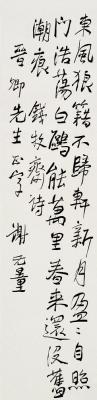 東風狼籍不歸軒新月盈〻自照
門浩蕩白鷗能萬里春來還沒舊
潮痕 錢牧齋詩
晉卿先生正字 謝无量